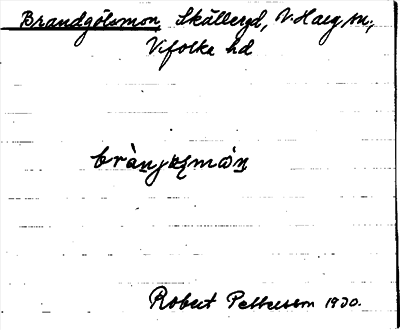 Brandgölsmon, Skälleryd, V. Harg sn.,
Vifolka hd
brànjəl̥smωn̥
Robert Pettersson 1930.